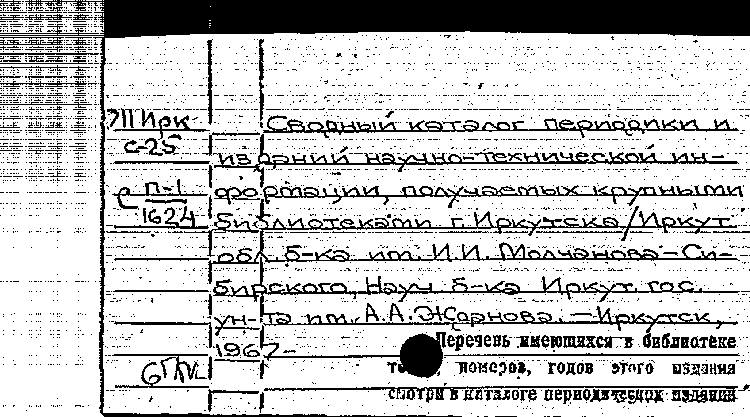 7ПИрк
С-25
Сводный каталог периодики и
изданий научно-технической ин-
П-1
1624
формации, получаемых крупными
библиотеками г. Иркутска/Иркут.
обл. б-ка им. И.И. Молчанова-Си-
бирского, Науч. б-ка Иркут. гос.
ун-та им. А.А. Жданова. — Иркутск,
1967-
Перечень имеющихся в библиотеке
номеров, годов этого издания
смотри в каталоге периодических изданий